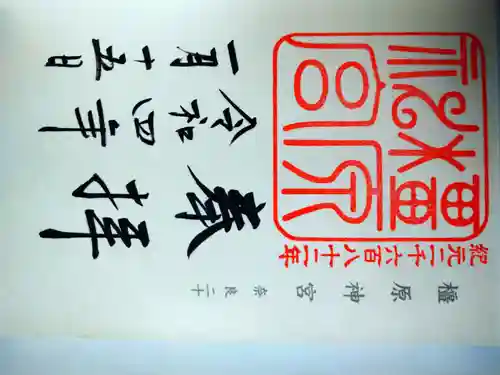 橿原神宮 奈良 二十
紀元二千六百八十二年
橿原
神宮
奉拝
令和四年
一月十五日